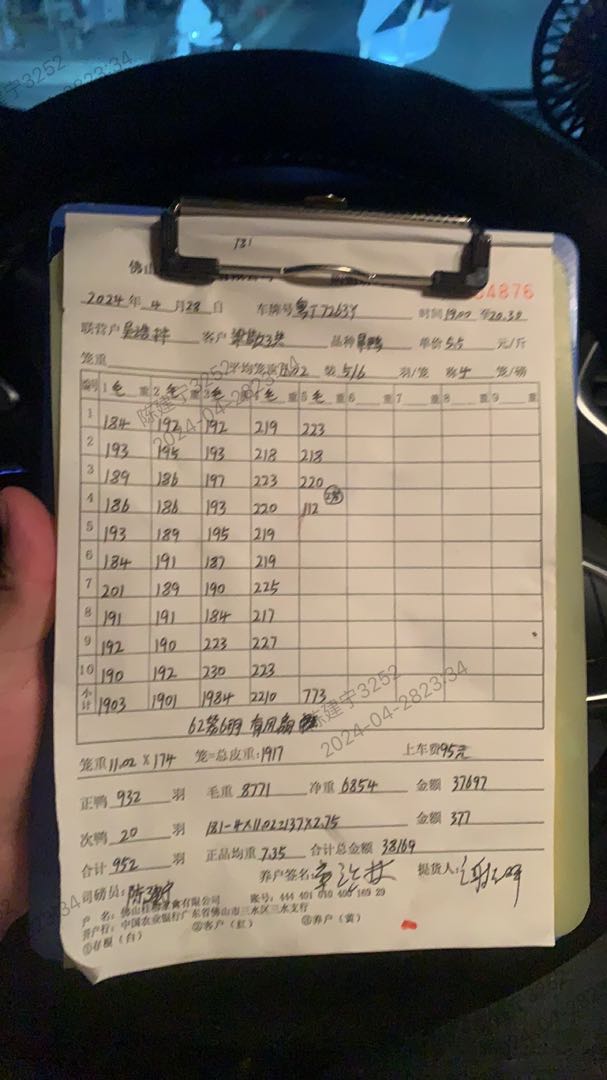 181
佛山
4876
2024年 4 月 28 日 车牌号 粤J72633 时间 1900 至 20.30
联营户 客户 品种 单价 5.5 元/斤
笼重 平均笼皮 11.02 装 5/6 羽/笼 称 4 笼/磅
编号 1 毛 重 2 毛 重 3 毛 重 4 毛 重 5 毛 重 6 重 7 重 8 重 9 重
1 184 192 192 219 223
2 193 195 193 218 218
3 189 186 197 223 220
4 186 186 193 220 112 2笼
5 193 189 195 219
6 184 191 187 219
7 201 189 190 225
8 191 191 184 217
9 192 190 223 227
10 190 192 230 223
小计 1903 1901 1984 2210 773
62笼6羽 有风扇
笼重 11.02 × 174 笼=总皮重: 1917 上车费 95元
正鸭 932 羽 毛重 8771 净重 6854 金额 37697
次鸭 20 羽 181-4×11.02=137×2.75 金额 377
合计 952 羽 正品均重 7.35 合计总金额 38169
司磅员: 陈建宁 养户签名: 提货人:
户 名: 佛山 食有限公司 账号: 444 401 010 400 169 29
开户行: 中国农业银行广东省佛山市三水区三水支行
①存根（白） ②客户（红） ③养户（黄）
陈建宁3252
2024-04-2823:34